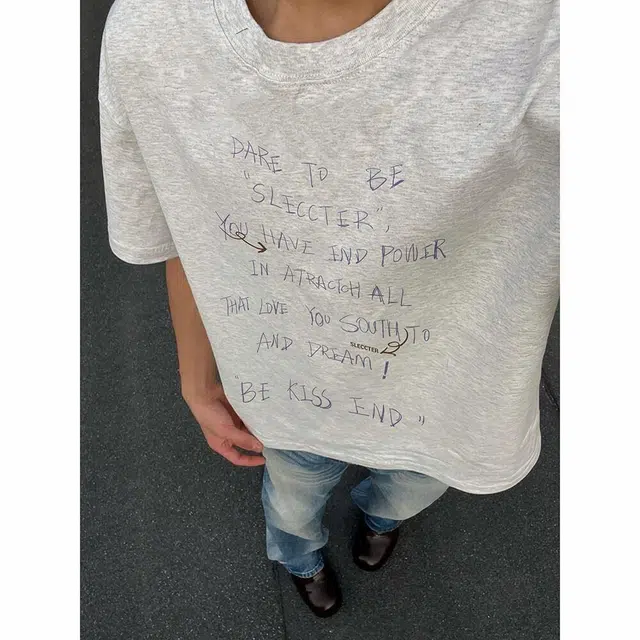 DARE TO BE
"SLECCTER",
YOU HAVE END POWER
IN ATRACTCH ALL
THAT LOVE YOU SOUTH TO
SLECCTER
AND DREAM!
"BE KISS END"